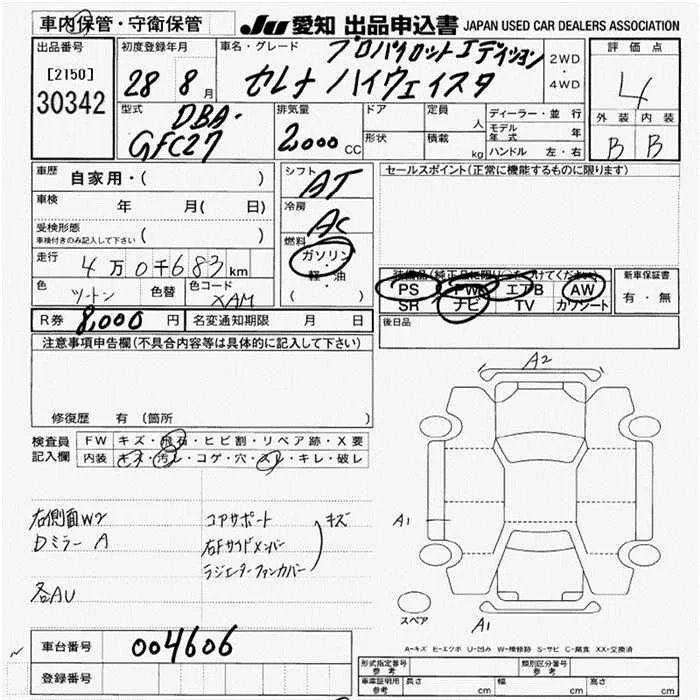 車内保管・守衛保管
JU 愛知 出品申込書 JAPAN USED CAR DEALERS ASSOCIATION
出品番号
[2150]
30342
初度登録年月
28 年 8 月
車名・グレード
プロパイロットエディション
セレナ ハイウェイスタ
2WD
・
4WD
評価点
4
外装 内装
B B
型式
DBA-
GFC27
排気量
2,000 CC
ドア
形状
定員
人
積載
kg
ディーラー・並行
モデル年式 年
ハンドル 左・右
車歴
自家用・( )
車検
年 月( 日)
受検形態
車検付きのみ記入して下さい ( )
走行
4万0千683 km
色
ツートン
色替
色コード
XAM
シフト
AT
冷房
AC
燃料
ガソリン
・
軽・油
( )
セールスポイント(正常に機能するものに限ります)
装備品(純正品に限り○をつけてください)
PS PW エアB AW
SR ナビ TV カワシート
新車保証書
有・無
R券 8,000 円
名変通知期限 月 日
後日品
注意事項申告欄(不具合内容等は具体的に記入して下さい)
修復歴 有 (箇所 )
検査員
記入欄
FW キズ・飛石・ヒビ割・リペア跡・X要
内装 キズ・汚レ・コゲ・穴・スレ・キレ・破レ
右側面W2
Dミラー A
各AU
コアサポート
右Fサイドメンバー
ラジエターファンカバー
キズ
A2
A1
A1
スペア
A-キズ E-エクボ U-凹み W-補修跡 S-サビ C-腐食 XX-交換済
車台番号
004606
登録番号
形式指定番号
参考
類別区分番号
参考
車庫証明用
参考
長さ cm 幅 cm 高さ cm